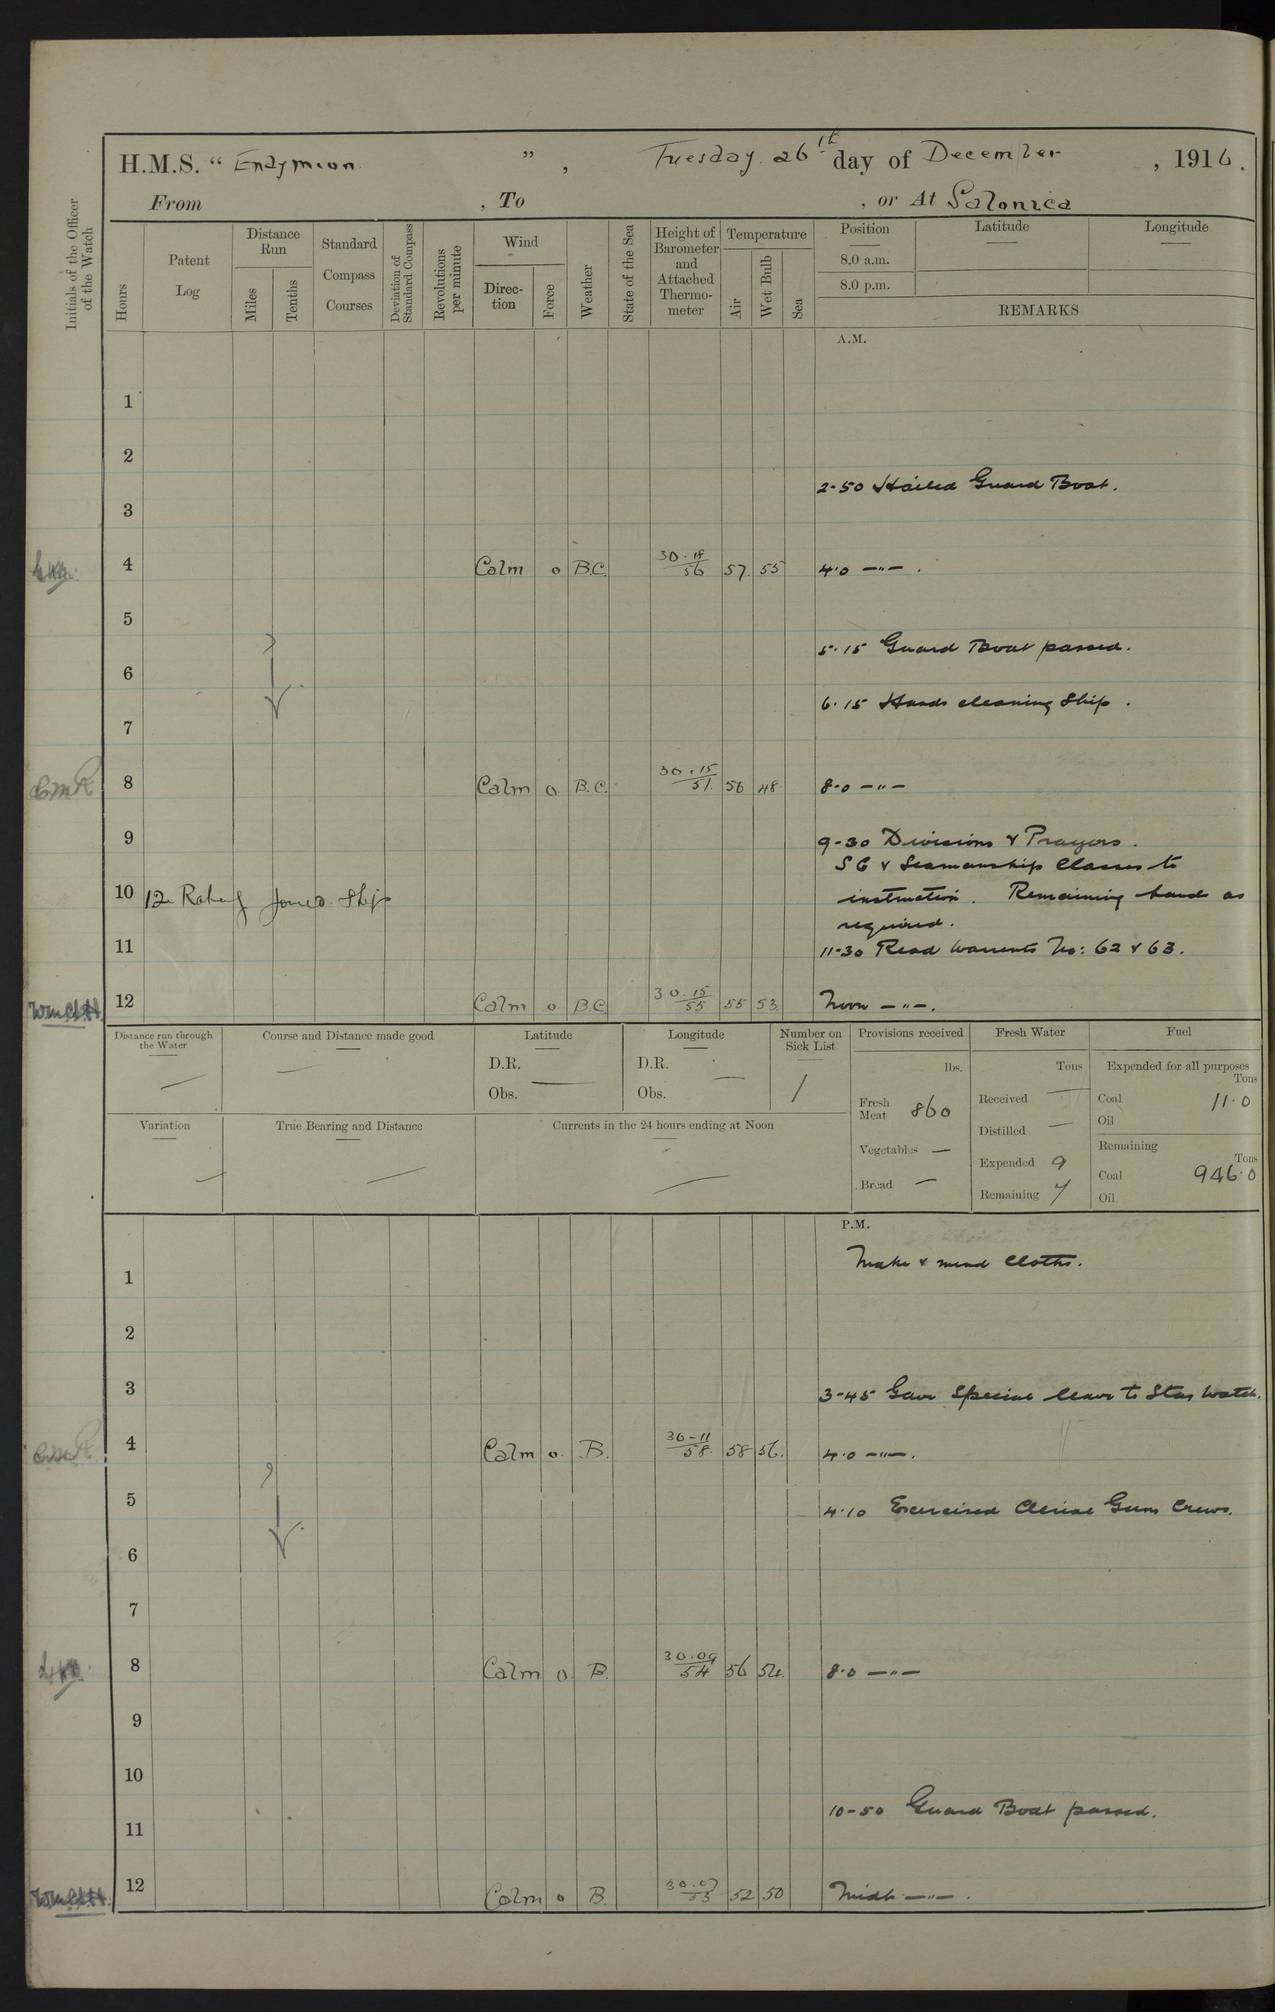 H.M.S. “ Endymion ” , Tuesday 26th day of December , 1916.
From , To , or At Salonica
Initials of the Officer of the Watch
Hours
Patent Log
Distance Run
Miles
Tenths
Standard Compass Courses
Deviation of Standard Compass
Revolutions per minute
Wind
Direction
Force
Weather
State of the Sea
Height of Barometer and Attached Thermometer
Temperature
Air
Wet Bulb
Sea
Position
8.0 a.m.
8.0 p.m.
Latitude
Longitude
REMARKS
A.M.
1
2
2-50 Hailed Guard Boat.
3
4 Calm 0 B.C. 30.18/56 57 55 4.0 —"— .
5
5.15 Guard Boat passed.
6
6.15 Hands cleaning Ship .
7
8 Calm 0 B.C. 30.15/51 56 48 8.0 —"—
9 9-30 Divisions & Prayers.
S G & Seamanship Classes to
10 12 Ratings Joined Ship instruction. Remaining hands as
required.
11 11-30 Read Warrants No: 62 & 63.
12 Calm 0 B.C. 30.15/55 55 53 Noon —"—.
Distance run through the Water —
Course and Distance made good —
Latitude
D.R.
Obs. —
Longitude
D.R.
Obs. —
Number on Sick List
1
Provisions received
lbs.
Fresh Meat 860
Vegetables —
Bread —
Fresh Water
Tons
Received —
Distilled —
Expended 9
Remaining 7
Fuel
Expended for all purposes
Tons
Coal 11.0
Oil
Remaining
Tons
Coal 946.0
Oil
Variation —
True Bearing and Distance —
Currents in the 24 hours ending at Noon —
P.M.
Make & mend cloths.
1
2
3 3-45 Gave Special leave to Star Watch.
4 Calm 0 B. 30-11/58 58 56 4.0 —"—.
5 4.10 Exercised Aerial Guns Crews.
6
7
8 Calm 0 B. 30.09/54 56 54 8.0 —"—
9
10
10-50 Guard Boat passed.
11
12 Calm 0 B. 30.07/53 52 50 Midt —"— .